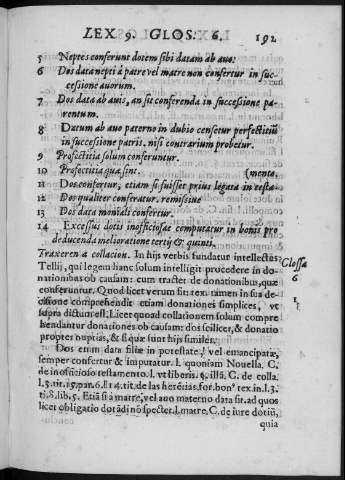 LEX 9. GLOS: 6. 192
5 Neptes conferunt dotem sibi datam ab auo:
6 Dos data nepti à patre vel matre non confertur in suc-
cessione auorum.
7 Dos data ab auis, an sit conferenda in successione pa-
rentum.
8 Datum ab auo paterno in dubio censetur perfectitiũ
in successione patris, nisi contrarium probetur.
9 Profictitia solum conferuntur.
10 Profectitia quæ sint. (menta.
11 Dos confertur, etiam si fuisset prius legata in testa-
12 Dos qualiter conferatur, remissiue
13 Dos data moniali confertur.
14 Excessus dotis inofficiosæ computatur in bonis pro
deducenda melioratione tertij & quinti.
Traxeren a collacion. In hijs verbis fundatur intellectus
Tellij, qui legem hanc solum intelligit procedere in do-
nationibus ob causam: cum tractet de donationibus, quæ
conferuntur. Quod licet verum sit: tex. tamen in sua de-
cisione comprehendit etiam donationes simplices, vt
supra dictum est; Licet quoad collationem solum compre
hendantur donationes ob causam: dos scilicet, & donatio
propter nuptias, & si quæ sunt hijs similes.
Glossa
6
1
Dos enim data filiæ in potestate, vel emancipatæ,
semper confertur & imputatur. l. quoniam Nouella. C.
de inofficioso testamento. l. vt liberis. q. illã. C. de colla.
l. 3. tit. 15. par. 6. l 14. tit. de las herẽcias. for. bonº tex. in l. 3.
ti. 8. lib. 5. Etiã si à matre, vel auo materno data sit. ad quos
licet obligatio dotãdi nõ spectet. l. matre. C. de iure dotiũ,
quia